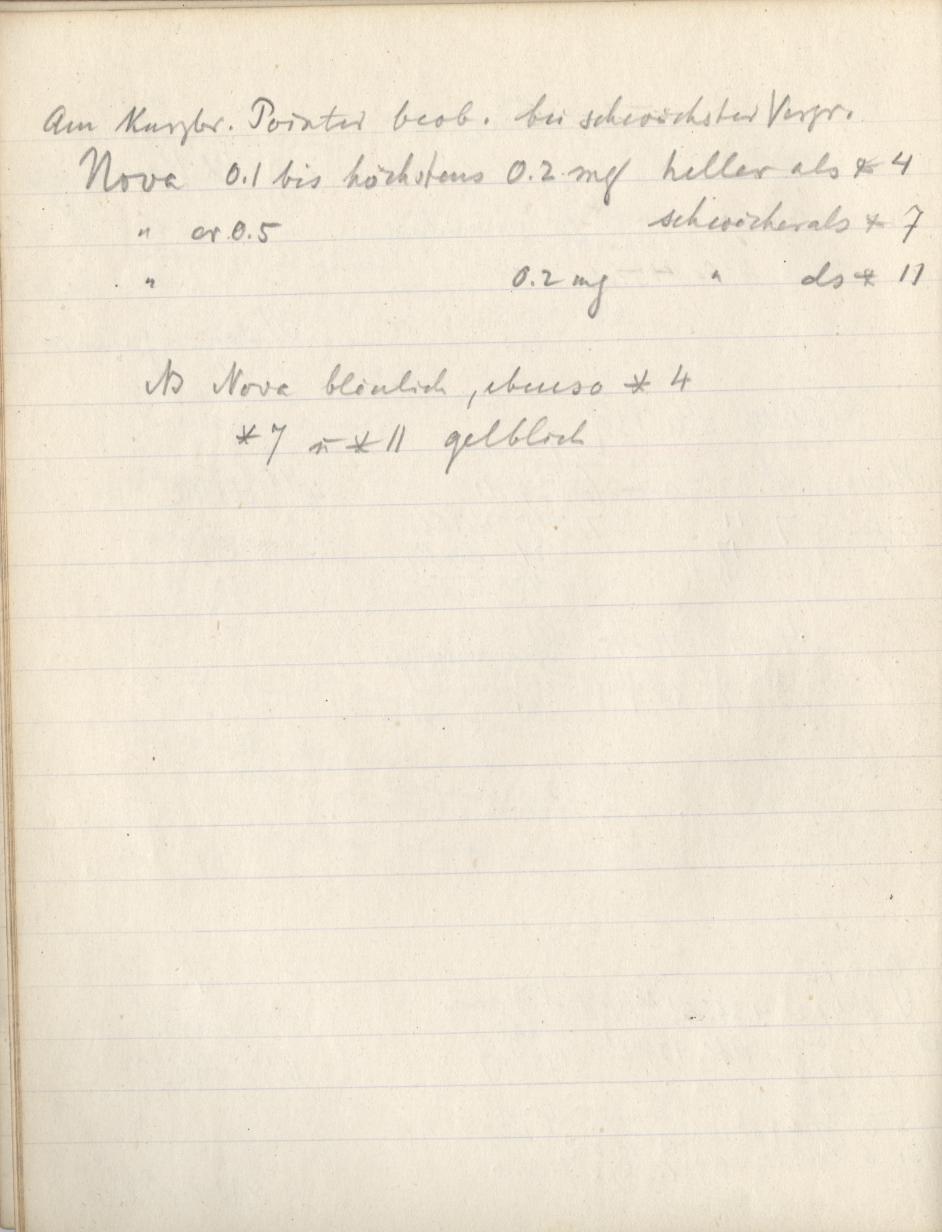 Am Kurzbr. Pointer beob. bei schwächster Vergr.
Nova 0.1 bis höchstens 0.2 mg heller als * 4
" cr 0.5 schwächer als * 7
" 0.2 mg " als * 11
NB Nova bläulich, ebenso * 4
* 7 u * 11 gelblich